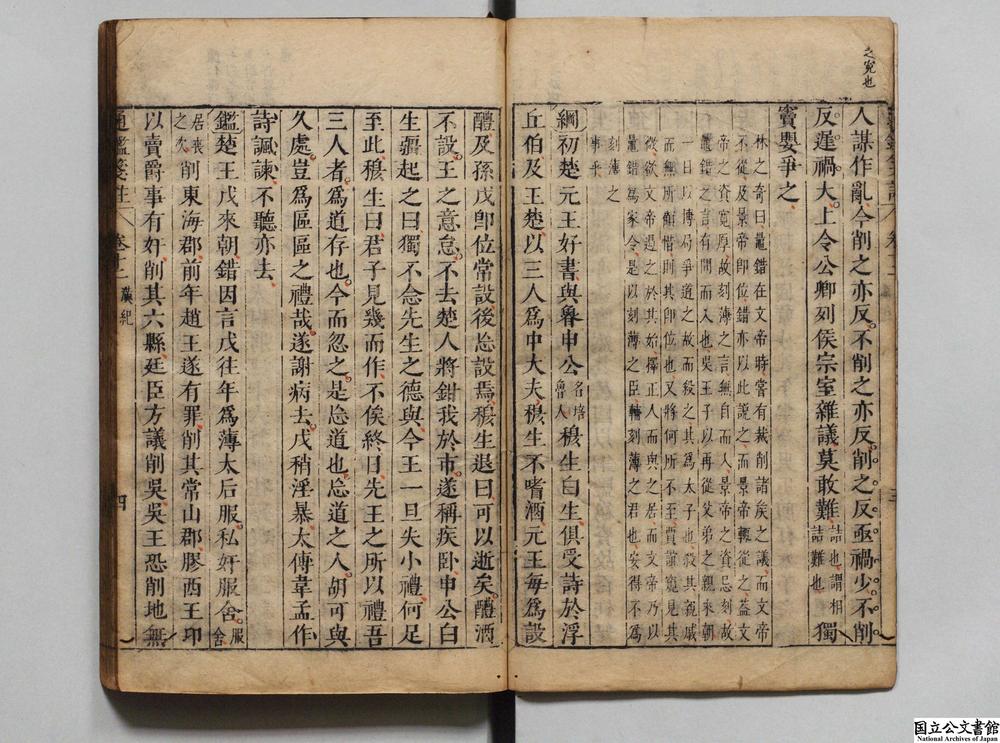 之冤也
人謀作亂今削之亦反不削之亦反削之反亟禍少不削
反遲禍大上令公卿列侯宗室雜議莫敢難詰也謂相詰難也獨
竇嬰爭之
林之奇曰鼂錯在文帝時嘗有裁削諸侯之議而文帝
不從及景帝即位錯亦以此說之而景帝輒從之蓋文
帝之資寬厚故刻薄之言無自而入景帝之資忌刻故
鼂錯之言有間而入也吳王子以再從父弟之親來朝
一旦以博局爭道之故而殺之其為太子也殺其親戚
而無所顧惜則其即位也又將何所不至賈誼窺見其
微欲文帝過之於其始擇正人而與之居而文帝乃以
鼂錯為家令是以刻薄之臣輔刻薄之君也安得不為
刻薄之
事乎
綱初楚元王好書與魯申公名培魯人穆生白生俱受詩於浮
丘伯及王楚以三人為中大夫穆生不嗜酒元王每為設
醴及孫戊即位常設後忘設焉穆生退曰可以逝矣醴酒
不設王之意怠不去楚人將鉗我於市遂稱疾臥申公白
生彊起之曰獨不念先生之德與今王一旦失小禮何足
至此穆生曰君子見幾而作不俟終日先王之所以禮吾
三人者為道存也今而忽之是忘道也忘道之人胡可與
久處豈為區區之禮哉遂謝病去戊稍淫暴太傅韋孟作
詩諷諫不聽亦去
鑑楚王戊來朝錯因言戊往年為薄太后服私奸服舍服舍
居喪之次削東海郡前年趙王遂有罪削其常山郡膠西王卬
以賣爵事有奸削其六縣廷臣方議削吳吳王恐削地無
通鑑箋註
卷十二
漢紀
四
国立公文書館
National Archives of Japan